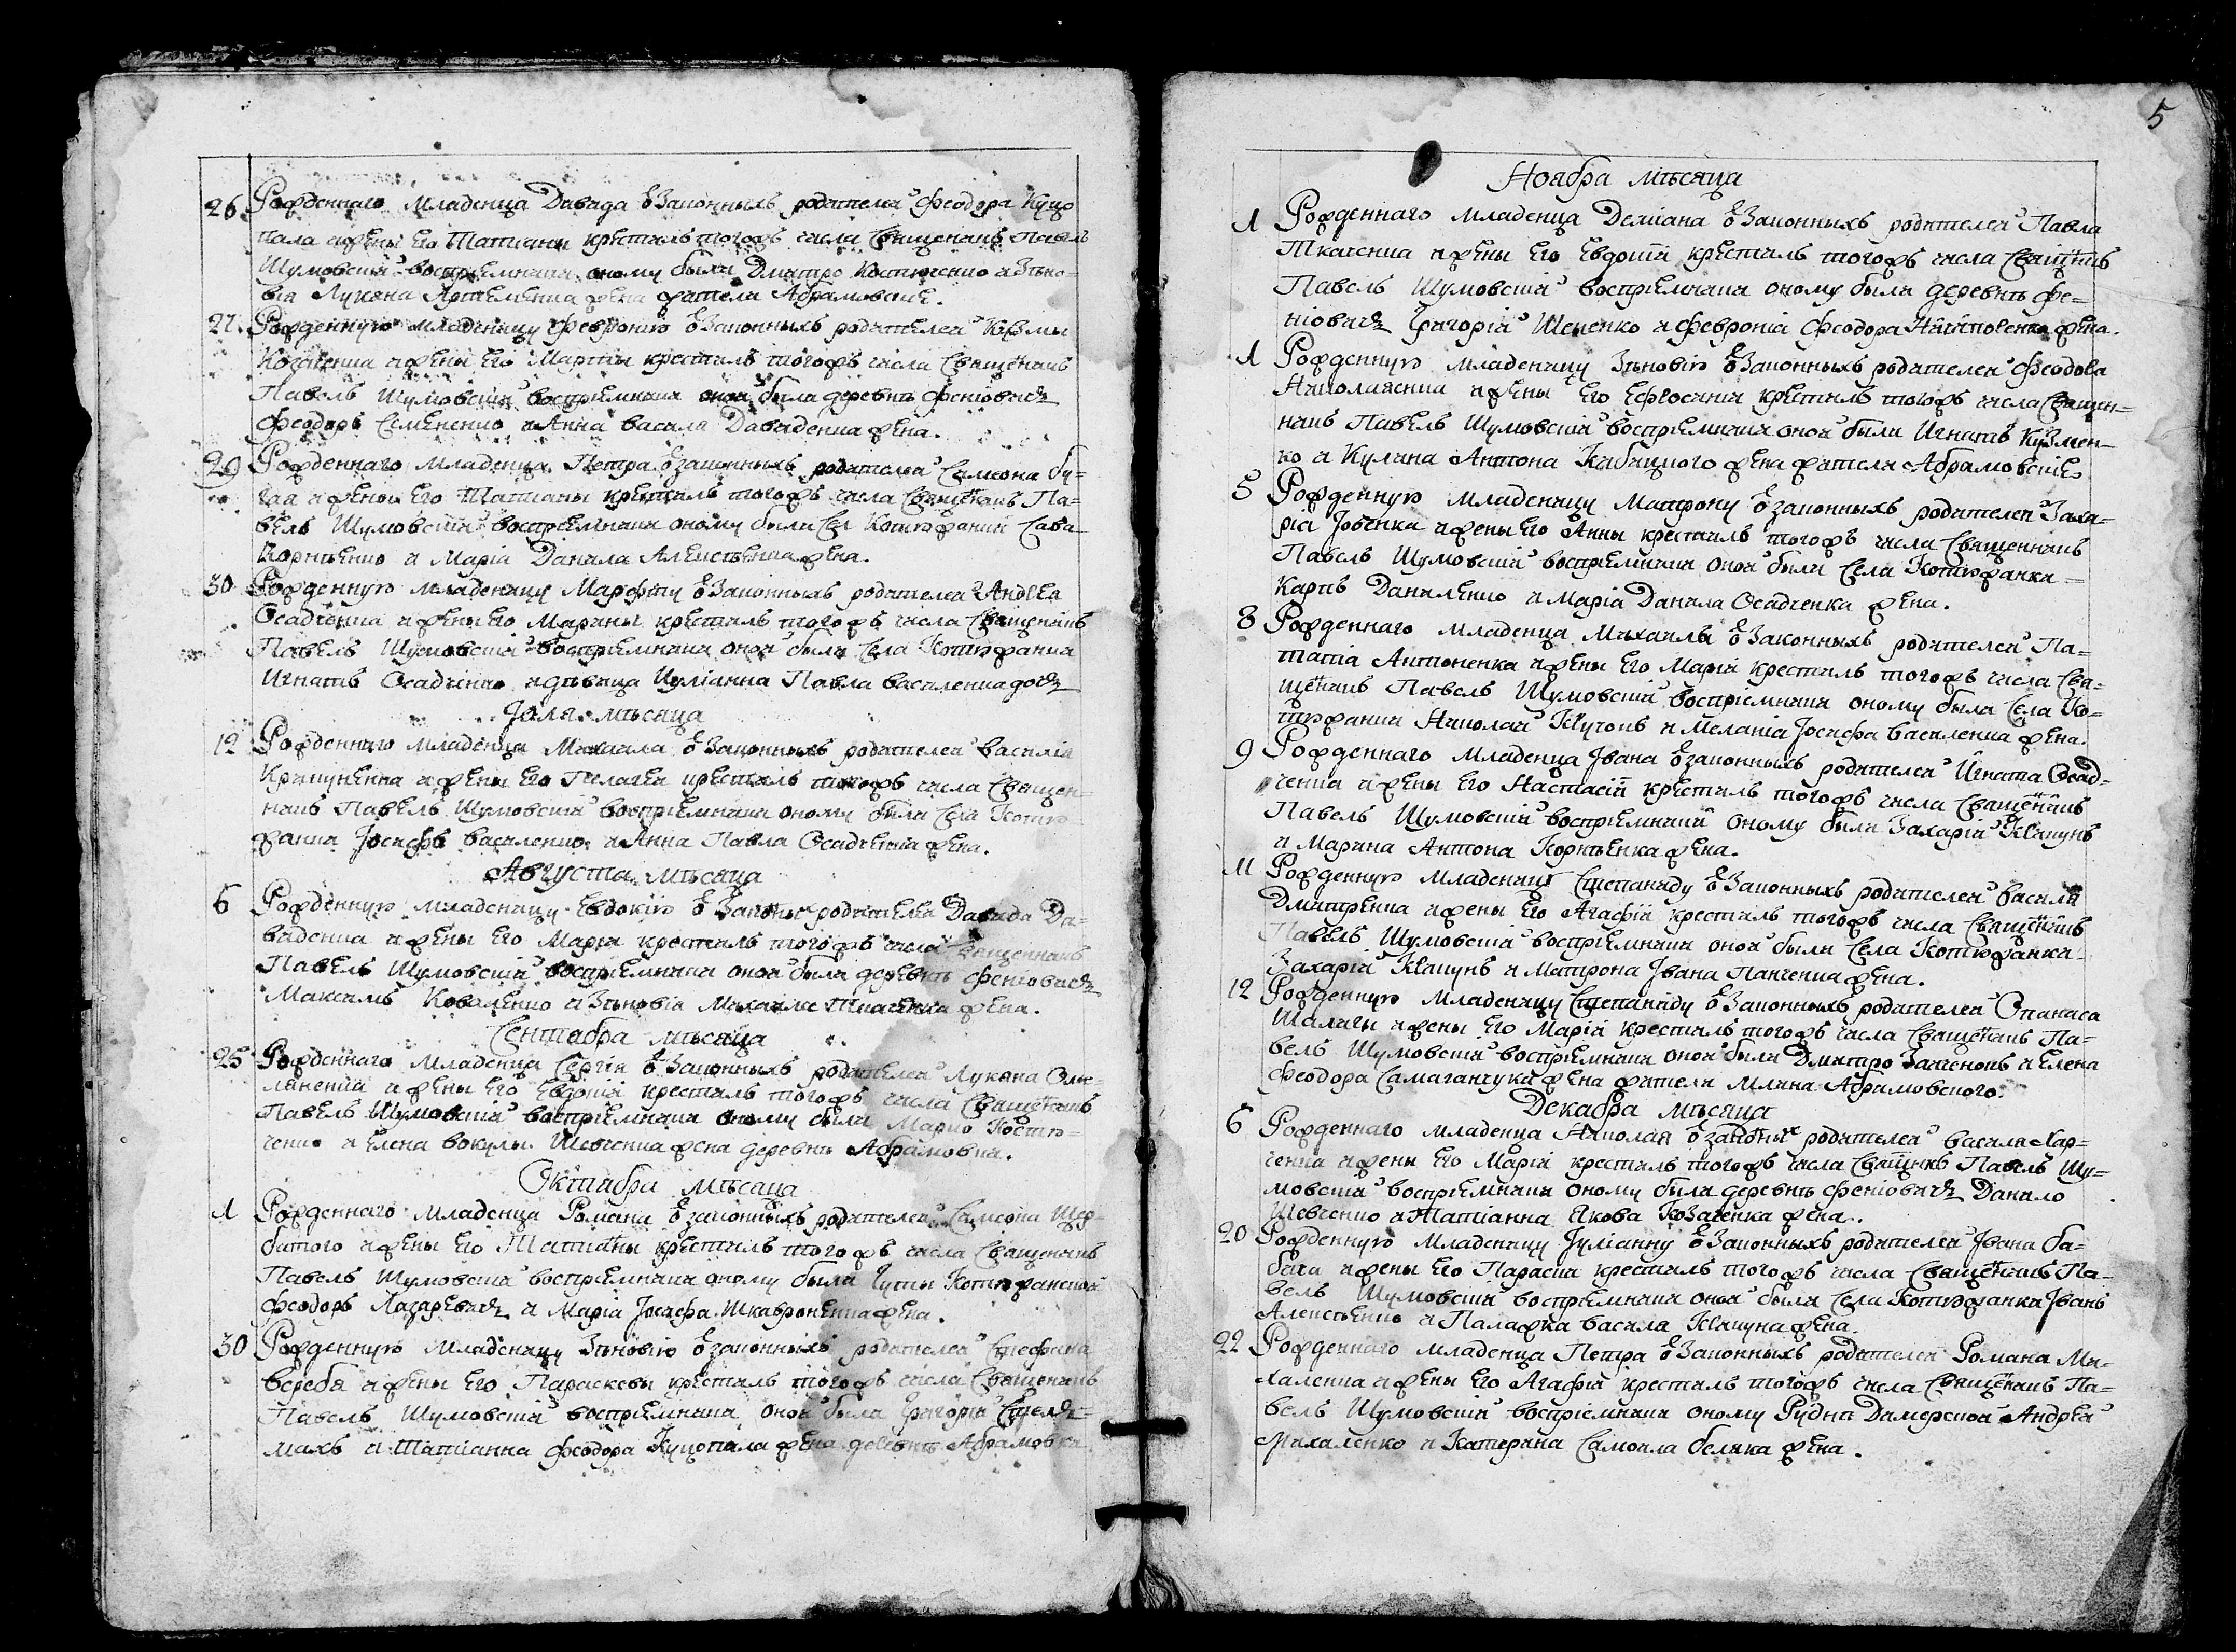 26 Рожденнаго младенца Давида ѿ Законныхъ родителей Феодора Куцо
пала и жены Его Татианы крестилъ тогожъ числа Священикъ Павелъ
Шумовскій воспріемники оному были Дмитро Костюченко и Зѣно-
вія Лукяна Артеменка жена жители Абрамовскіе.
27. Рожденную младеницу Февронію ѿ Законныхъ родителей Козмы
Козаченка и жены Его Марты крестилъ тогожъ числа Священикъ
Павелъ Шумовскій воспріемники оной были деревнѣ Феніовичъ
Феодоръ Семененко и Анна василя Давиденка жена.
29 Рожденнаго Младенца Петра ѿ законныхъ родителей Симеона бу-
гая и жены Его Татіаны крестилъ тогожъ числа Священикъ Па-
велъ Шумовскій воспріемники оному были Сел Котюжанки Сава
Корнѣенко и Марія Данила Алексѣенка жена.
30 Рожденную младеницу Марфту ѿ Законныхъ родителей Андрея
Осадченка и жены Его Марины крестилъ тогожъ числа Священикъ
Павелъ Шумовскій воспріемники оной были Села Котюжанки
Игнатъ Осадченко и дѣвица Иуліанна Павла василенка дочъ
Іюля мѣсяца
12 Рожденнаго младенца Михаила ѿ Законныхъ родителей василія
Крипуненка и жены Его Пелагеи крестилъ тогожъ числа Священ-
никъ Павелъ Шумовскій воспріемники оному были Села Котю-
жанки Іосифъ василенко и Анна Павла Осадченка жена.
Августа мѣсяца
6 Рожденную младеницу Евдокію ѿ Законых родителей Давида Да-
виденка и жены Его Маріи крестилъ тогожъ числа Священникъ
Павелъ Шумовскій воспріемники оной были деревнѣ Феніовичъ
Максимъ Коваленко и Зѣновія Михаила Ткаченка жена.
Сентабра мѣсяца
25 Рожденнаго младенца Сергія ѿ Законныхъ родителей Лукяна Оме-
ляненка и жены Его Евдокіи крестилъ тогожъ числа Священикъ
Павелъ Шумовскій воспріемники оному были Марко Костю-
ченко и Елена вокулы Шевченка жена деревнѣ Абрамовки.
Октабра мѣсяца
1 Рожденнаго младенца Романа ѿ законныхъ родителей Симеона Щер-
батого и жены Его Татианы крестилъ тогожъ числа Священикъ
Павелъ Шумовскій воспріемники оному были Гуты Котюжанской
Феодоръ Лазаревичъ и Марія Іосифа Шкавроненка жена.
30 Рожденную младеницу Зѣновію ѿ законныхъ родителей Стефана
веребя и жены Его Параскевы крестилъ тогожъ числа Священикъ
Павелъ Шумовскій воспріемники оной были Григорій Стель-
махъ и Татіанна Феодора Куцопала жена деревнѣ Абрамовки
5
Ноябра мѣсяца
1 Рожденнаго младенца Деміана ѿ Законныхъ родителей Павла
Ткаченка и жены Его Евдокіи крестилъ тогожъ числа Свящѣникъ
Павелъ Шумовскій воспріемники оному были деревнѣ Фе-
ніовичъ Григорій Шененко и Февронія Феодора жена.
1 Рожденную младеницу Зѣновію ѿ Законныхъ родителей Феодора
и жены Его Ефросиніи крестилъ тогожъ числа Священ-
никъ Павелъ Шумовскій воспріемники оной были Игнатъ Кузмен-
ко и Кулина Антона Кабацкого жена жители Абрамовскіе
5 Рожденную младеницу Матрону ѿ законныхъ родителей Заха-
рія Іовенка и жены Его Анны крестилъ тогожъ числа Священникъ
Павелъ Шумовскій воспріемники оной были Села Котюжанки
Карпъ Даниленко и Марія Данила Осадченка жена.
8 Рожденнаго младенца Михаила ѿ Законныхъ родителей Па-
татія Антоненка и жены Его Маріи крестилъ тогожъ числа Свя-
щеникъ Павелъ Шумовскій воспріемники оному были Села Ко-
тюжанки Николай Клучокъ и Меланія Іосифа василенка жена.
9 Рожденнаго младенца Івана ѿ законныхъ родителей Игната Осад-
ченка и жены Его Настасіи крестилъ тогожъ числа Священикъ
Павелъ Шумовскій воспріемники оному были Захарій Клацунъ
и Марина Антона Корнѣенка жена.
11 Рожденную младеницу Степаниду ѿ Законныхъ родителей василя
Дмитренка и жены Его Агафіи крестилъ тогожъ числа Священикъ
Павелъ Шумовскій воспріемники оной были Села Котюжанки
Захарій Клацунъ и Матрона Івана Панченка жена.
12 Рожденную младеницу Степаниду ѿ Законныхъ родителей Опанаса
Шалигы и жены Его Маріи крестилъ тогожъ числа Священикъ Па-
велъ Шумовскій воспріемники оной были Дмитро и Елена
Феодора Самаганчука жена жители Млина Абрамовского.
Декабра мѣсяца
6 Рожденнаго младенца Николая ѿ законых родителей василя Хар-
ченка и жены Его Маріи крестилъ тогожъ числа Свящникъ Павелъ Шу-
мовскій воспріемники оному были деревнѣ Феніовичъ Данило
Шевченко и Татіанна Якова Козаченка жена.
20 Рожденную младеницу Іуліанну ѿ Законныхъ родителей Івана ба-
бича и жены Его Параски крестилъ тогожъ числа Священикъ Па-
велъ Шумовскій воспріемники оной были Села Котюжанки Іванъ
Алексѣенко и Палажка василя Клацуна жена.
22 Рожденнаго младенца Петра ѿ Законныхъ родителей Романа Ми-
халенка и жены Его Агафіи крестилъ тогожъ числа Священикъ Па-
велъ Шумовскій воспріемники оному Рудни Димерской Андрей
Михаленко и Катерина Самоила беляка жена.